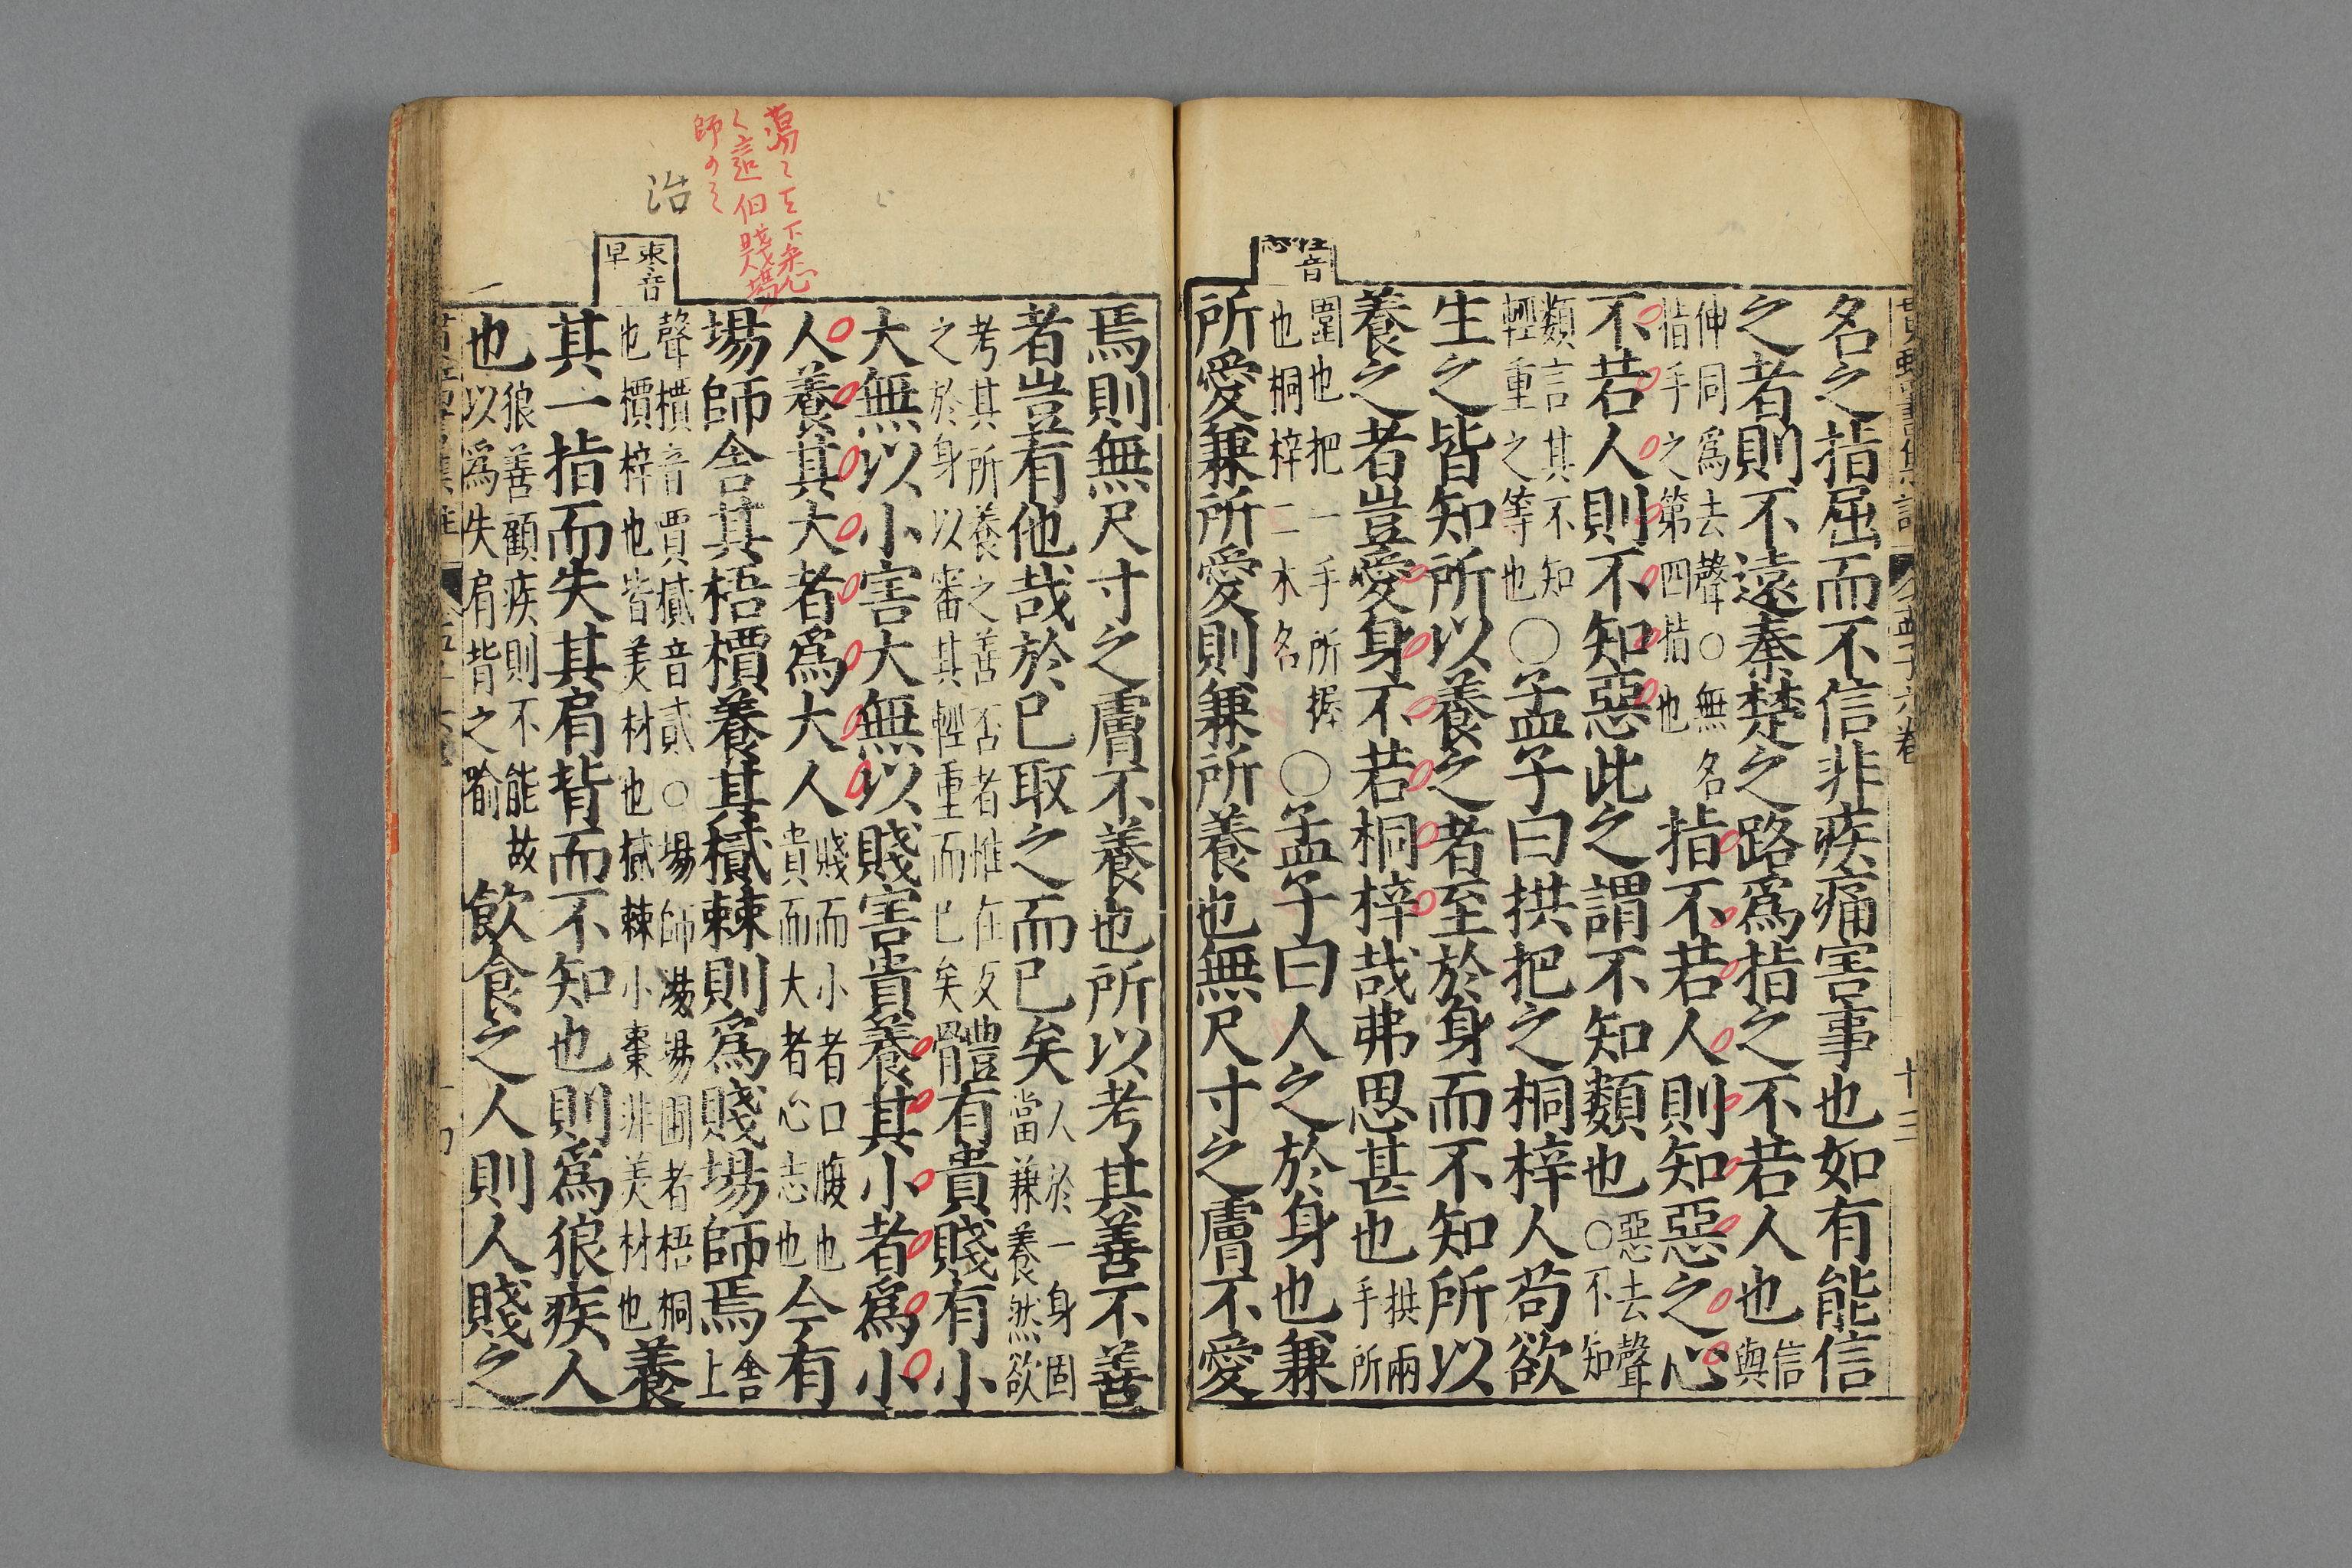 名之指屈而不信非疾痛害事也如有能信
之者則不遠秦楚之路爲指之不若人也信與
伸同爲去聲○無名指手之第四指也指不若人則知惡之心
不若人則不知惡此之謂不知類也惡去聲○不知
類言其不知輕重之等也○孟子曰拱把之桐梓人苟欲
生之皆知所以養之者至於身而不知所以
養之者豈愛身不若桐梓哉弗思甚也拱兩手所
圍也把一手所握也桐梓二木名○孟子曰人之於身也兼
所愛兼所愛則兼所養也無尺寸之膚不愛
孟子六卷
十三
焉則無尺寸之膚不養也所以考其善不善
者豈有他哉於已取之而已矣人於一身固當兼養然欲
考其所養之善否者惟在反之於身以審其輕重而已矣體有貴賤有小
大無以小害大無以賤害貴養其小者爲小
人養其大者爲大人賤而小者口腹也貴而大者心志也今有
場師舍其梧檟養其樲棘則爲賤場師焉舍上
聲檟音賈樲音貳○場師塲場圃者梧桐也檟梓也皆美材也樲棘小棗非美材也養
其一指而失其肩背而不知也則爲狼疾人
也狼善顧疾則不能故以爲失肩背之喻飲食之人則人賤之
棗音早
治